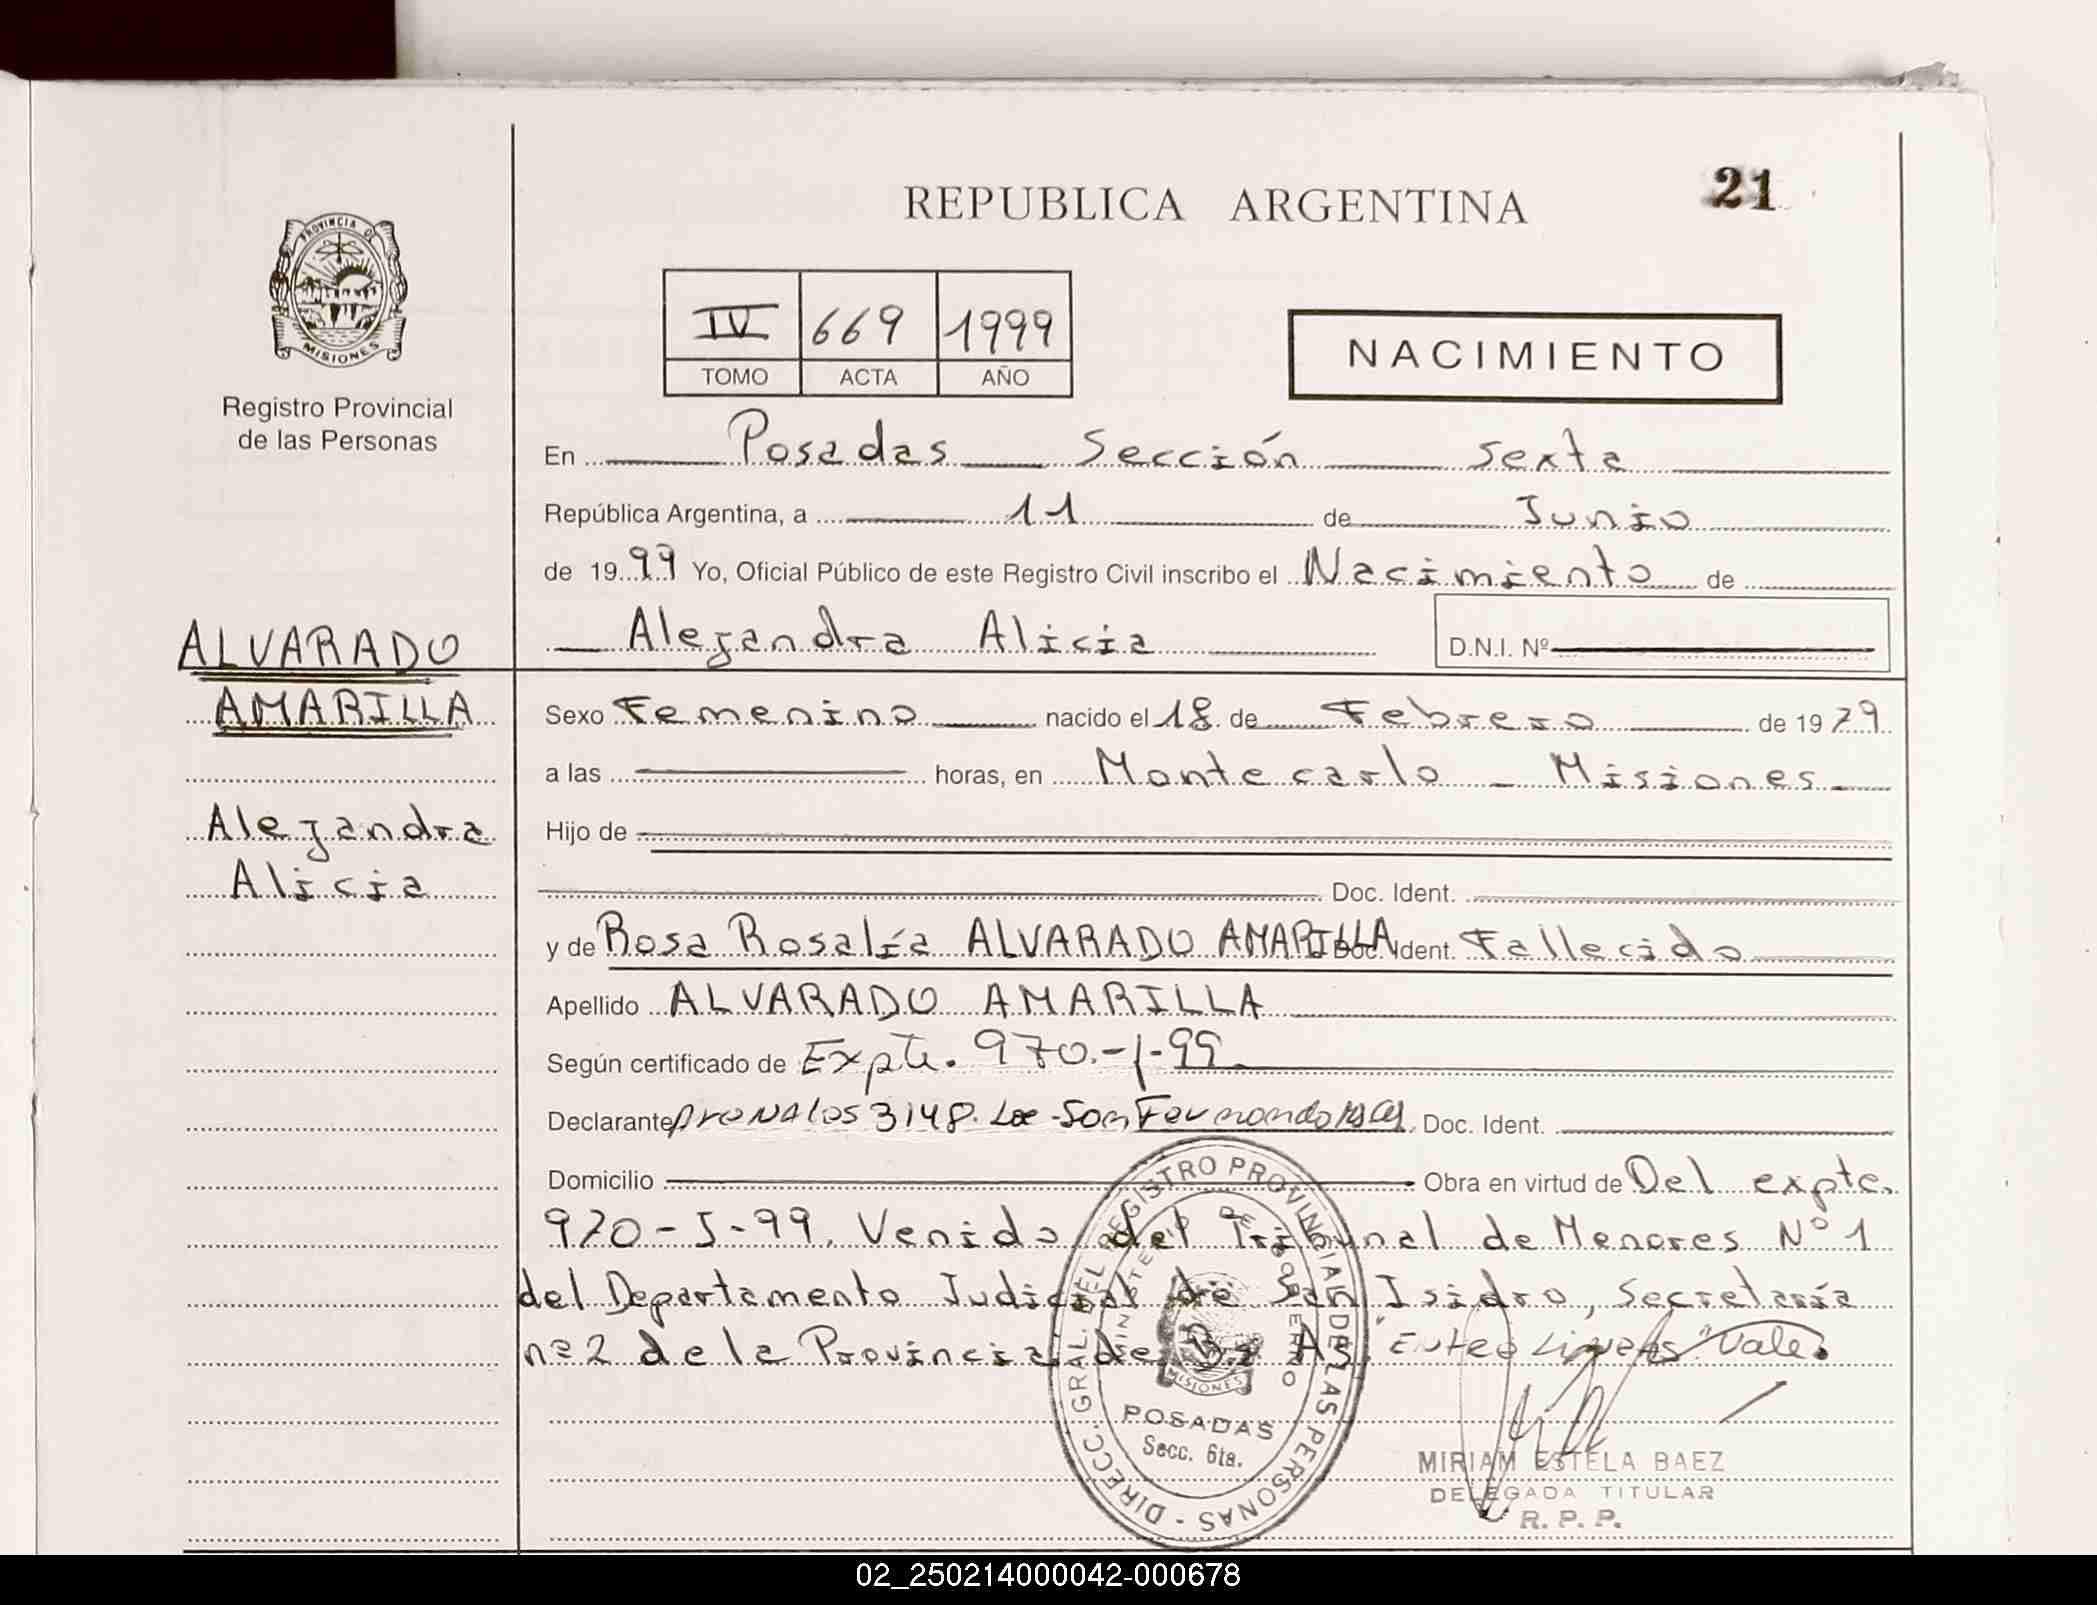 REPUBLICA ARGENTINA
21
PROVINCIA DE
MISIONES
Registro Provincial
de las Personas
IV 669 1999
TOMO ACTA AÑO
NACIMIENTO
En Posadas Sección Sexta
República Argentina, a 11 de Junio
de 1999 Yo, Oficial Público de este Registro Civil inscribo el Nacimiento de
Alejandra Alicia D.N.I. Nº
ALVARADO
AMARILLA
Alejandra
Alicia
Sexo Femenino nacido el 18 de Febrero de 1979
a las horas, en Montecarlo - Misiones
Hijo de
Doc. Ident.
y de Rosa Rosalía ALVARADO AMARILLA Doc. Ident. Fallecido
Apellido ALVARADO AMARILLA
Según certificado de Expte. 970.-I-99
Declarante 3148. San Fernando Doc. Ident.
Domicilio Obra en virtud de Del expte.
970-I-99. Venido del Tribunal de Menores Nº 1
del Departamento Judicial de San Isidro, Secretaría
nº2 de la Provincia de Bs As. "Entre Lineas" Vale.
DIRECC. GRAL. DEL REGISTRO PROVINCIAL DE LAS PERSONAS -
MINISTERIO DE GOBIERNO
MISIONES
POSADAS
Secc. 6ta.
MIRIAM ESTELA BAEZ
DELEGADA TITULAR
R. P. P.
02_250214000042-000678